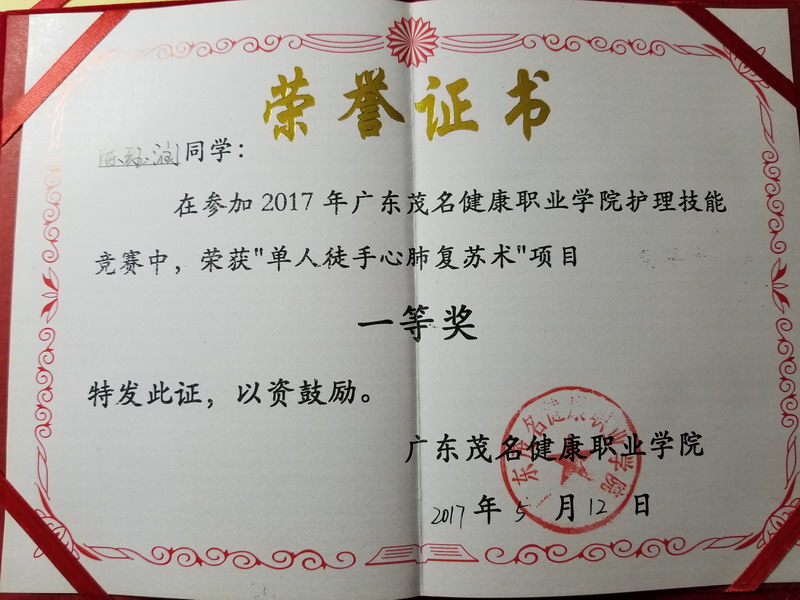 荣誉证书
同学：
在参加2017年广东茂名健康职业学院护理技能
竞赛中，荣获"单人徒手心肺复苏术"项目
一等奖
特发此证，以资鼓励。
广东茂名健康职业学院
2017年5月12日
广东茂名健康职业学院